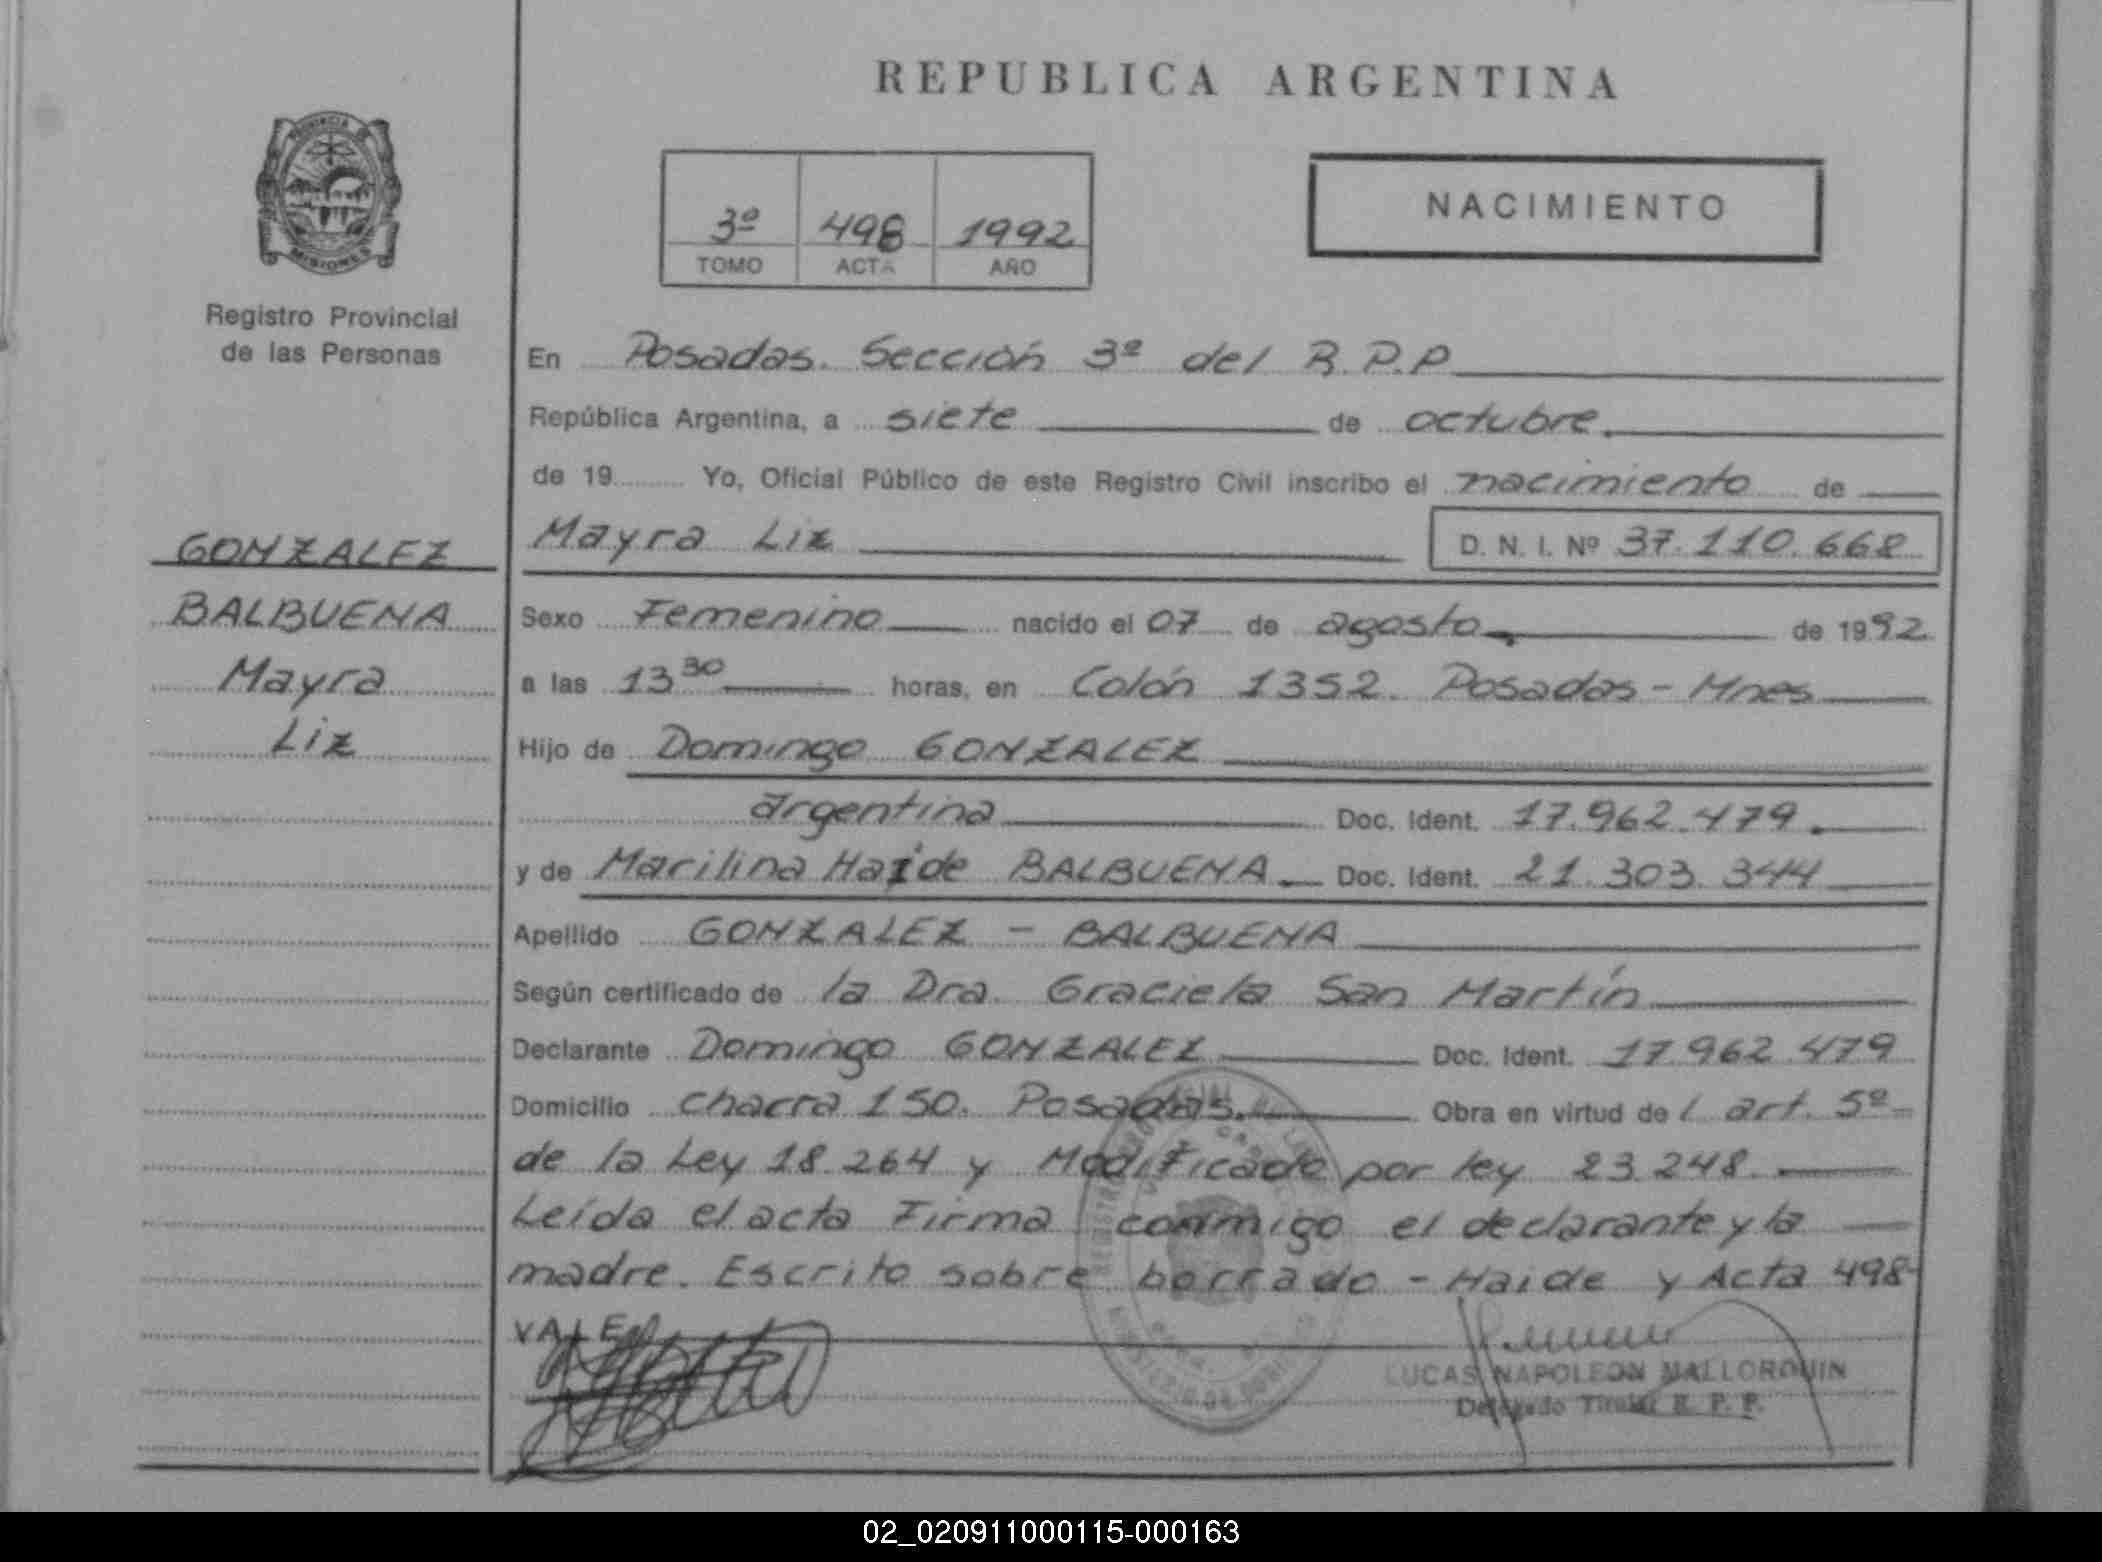 REPUBLICA ARGENTINA
PROVINCIA DE
MISIONES
Registro Provincial
de las Personas
3º 498 1992
TOMO ACTA AÑO
NACIMIENTO
GONZALEZ
BALBUENA
Mayra
Liz
En Posadas. Sección 3º del R.P.P
República Argentina, a siete de octubre.
de 19 Yo, Oficial Público de este Registro Civil inscribo el nacimiento de
Mayra Liz D. N. I. Nº 37.110.668
Sexo Femenino nacido el 07 de agosto de 1992
a las 13 30 horas, en Colón 1352. Posadas - Mnes
Hijo de Domingo GONZALEZ
argentina Doc. Ident. 17.962.479.
y de Marilina Haide BALBUENA Doc. Ident. 21.303.344
Apellido GONZALEZ - BALBUENA
Según certificado de la Dra. Graciela San Martín
Declarante Domingo GONZALEZ Doc. Ident. 17.962.479
Domicilio chacra 150. Posadas. Obra en virtud del art. 5º
de la Ley 18.264 y Modificado por ley 23.248.
Leída el acta Firma conmigo el declarante y la
madre. Escrito sobre borrado - Haide y Acta 498-
VALE
LUCAS NAPOLEON MALLORQUIN
Delegado Titular R. P. P.
02_020911000115-000163